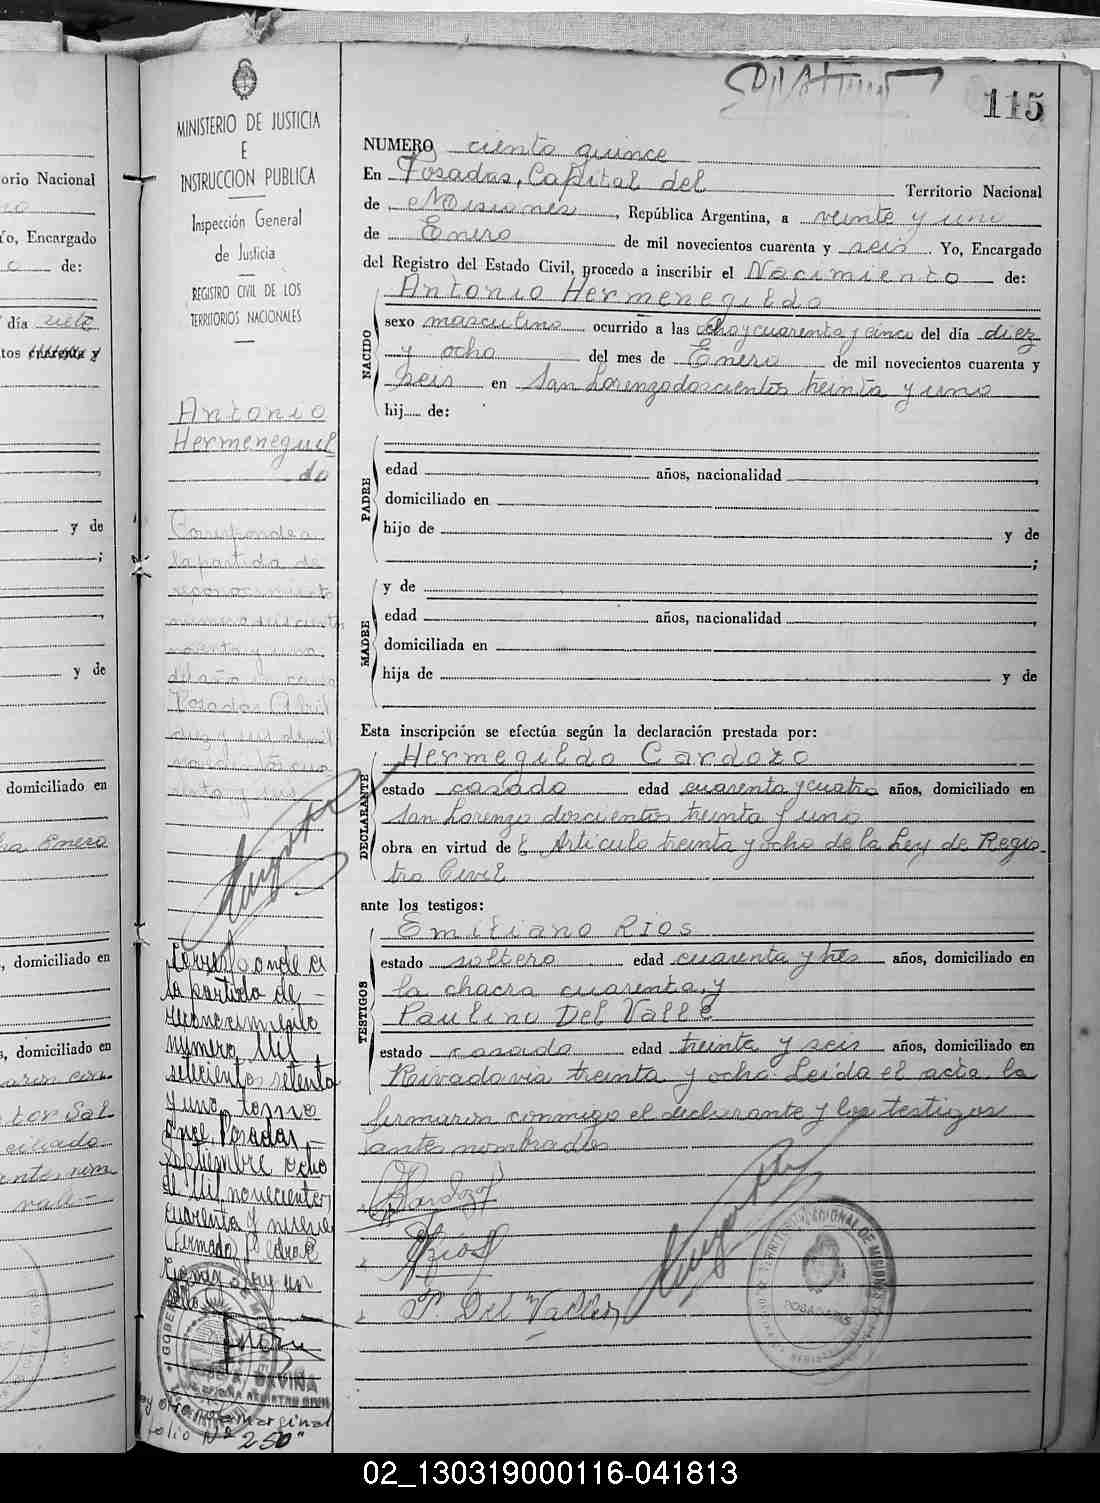 115
MINISTERIO DE JUSTICIA
E
INSTRUCCION PUBLICA
Inspección General
de Justicia
REGISTRO CIVIL DE LOS
TERRITORIOS NACIONALES
Antonio
Hermeneguil
do
Corresponde a
la partida de
reconocimiento
numero
noventa y uno
del año
Posadas Abril
diez y seis de mil
novecientos cua
renta y seis
Corresponde a
la partida de
reconocimiento
numero Mil
setecientos setenta
y uno, tomo
Posadas,
Septiembre ocho
de Mil novecientos
cuarenta y nueve
(Firmado)
Gomez hay un
sello
marginal
folio Nº 250"
NUMERO ciento quince
En Posadas, Capital del Territorio Nacional
de Misiones, República Argentina, a veinte y uno
de Enero de mil novecientos cuarenta y seis. Yo, Encargado
del Registro del Estado Civil, procedo a inscribir el Nacimiento de:
NACIDO
Antonio Hermenegildo
sexo masculino ocurrido a las ocho y cuarenta y cinco del día diez
y ocho del mes de Enero de mil novecientos cuarenta y
seis en San Lorenzo doscientos treinta y uno
hij de:
PADRE
edad años, nacionalidad
domiciliado en
hijo de y de
;
MADRE
y de
edad años, nacionalidad
domiciliada en
hija de y de
Esta inscripción se efectúa según la declaración prestada por:
DECLARANTE
Hermegildo Cardozo
estado casado edad cuarenta y cuatro años, domiciliado en
San Lorenzo doscientos treinta y uno
obra en virtud de l Articulo treinta y ocho de la Ley de Regis-
tro Civil
ante los testigos:
TESTIGOS
Emiliano Rios
estado soltero edad cuarenta y tres años, domiciliado en
la chacra cuarenta, y
Paulino Del Valle
estado casado edad treinta y seis años, domiciliado en
Rivadavia treinta y ocho. Leida el acta, la
firmaron conmigo el declarante y los testigos
antes nombrados
Cardozo
Rios
P. Del Valle
POSADAS
orio Nacional
Yo, Encargado
de:
día siete
y de
y de
domiciliado en
Enero
, domiciliado en
, domiciliado en
02_130319000116-041813